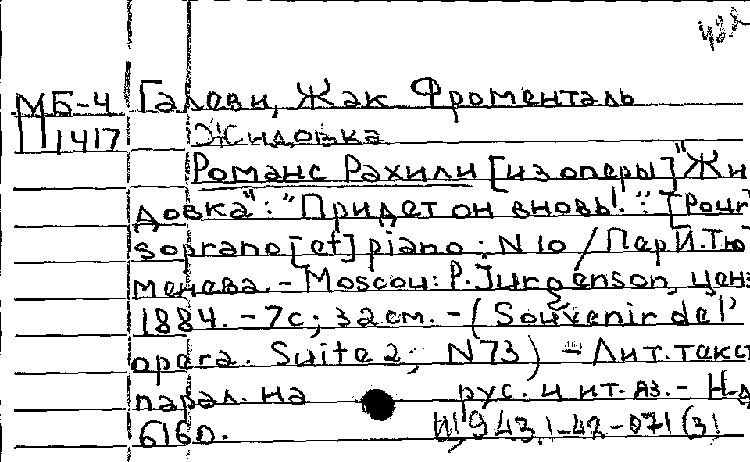 422
МБ-4 Галеви, Жак Фроменталь
П 1417 Жидовка
Романс Рахили [из оперы] "Жи
довка": "Придет он вновь!": [Pour]
soprano [et] piano: N 10 / Пер И. Тю
менева. - Moscou: P. Jurgenson, ценз
1884. - 7с; 32см. - (Souvenir de l'
opera. Suite 2; N 73) - Лит. текст
парал. на рус. и ит. яз. - Н.д
6160. Щ 943.1-42-071(3)